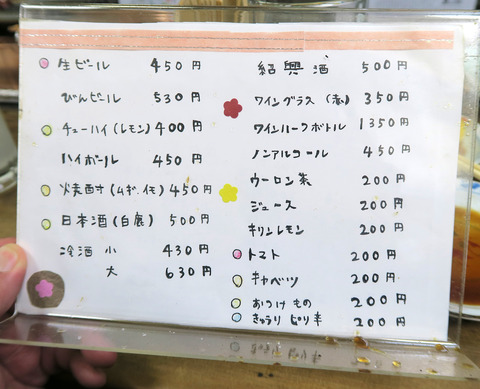 生ビール 450円
びんビール 530円
チューハイ(レモン) 400円
ハイボール 450円
焼酎(ムギ.イモ) 450円
日本酒(白鹿) 500円
冷酒 小 430円
大 630円
紹興酒 500円
ワイングラス(赤) 350円
ワインハーフボトル 1350円
ノンアルコール 450円
ウーロン茶 200円
ジュース 200円
キリンレモン 200円
トマト 200円
キャベツ 200円
おつけもの 200円
きゅうりピリ辛 200円